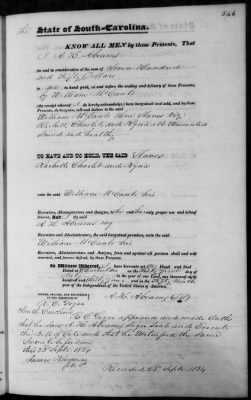 546
The State of South-Carolina.
KNOW ALL MEN by these Presents, That
I A. H. Abrams
for and in consideration of the sum of Seven Hundred
and Fifty Dollars
to me in hand paid, at and before the sealing and delivery of these Presents,
by William McCants
(the receipt whereof I do hereby acknowledge) have bargained and sold, and by these
Presents, do bargain, sell and deliver to the said
William McCants three Slaves Viz:
Rachell, Charlot and Warranted
Sound and healthy
TO HAVE AND TO HOLD, THE SAID Slaves
Rachell Charlot and
unto the said William McCants his
Executors, Administrators and Assigns, to his and their only proper use and behoof
forever. And I the said
A. H. Abrams my
Executors and Administrators, the said bargained premises, unto the said
William McCants his
Executors, Administrators and Assigns, from and against all persons shall and will
warrant, and forever defend, by these Presents.
In Witness Whereof, I have hereunto set my Hand and Seal
Dated at Charleston on the day of
in the year of our Lord one thousand eight
hundred and thirty four and in the fifty ninth
year of the Independence of the United States of America.
SIGNED, SEALED, AND DELIVERED
IN THE PRESENCE OF
A. H. Abrams (LS)
South Carolina
appeared and made Oath
that he saw A. H. Abrams Sign Seal and Execute
this Bill of Sale and that he Witnessed the Same
Sworn to before me
this 23 Sept. 1834
James Kingman
Recorded 23 Sept. 1834